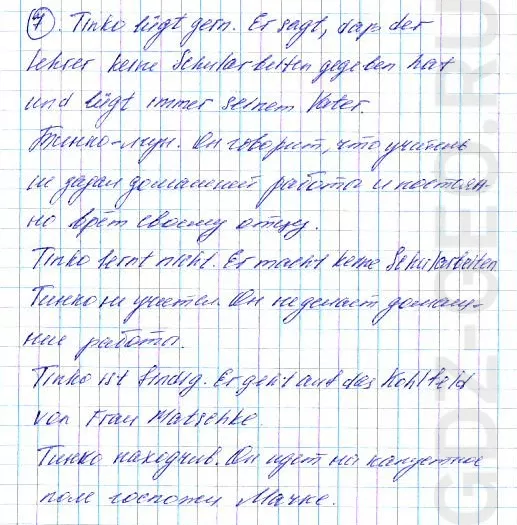 7. Tinko lügt gern. Er sagt, dap der
Lehrer keine Schularbeiten gegeben hat
und lügt immer seinem Vater.
Тинко-лгун. Он говорит, что учитель
не задал домашней работы и постоян-
но врёт своему отцу.
Tinko lernt nicht. Er macht keine Schularbeiten
Тинко не учится. Он не делает домаш-
ние работы.
Tinko ist findig. Er geht auf das Kohlfeld
von Frau Matschke.
Тинко находчив. Он идет на капустное
поле госпожи Мачке.
GDZ-GEO.RU